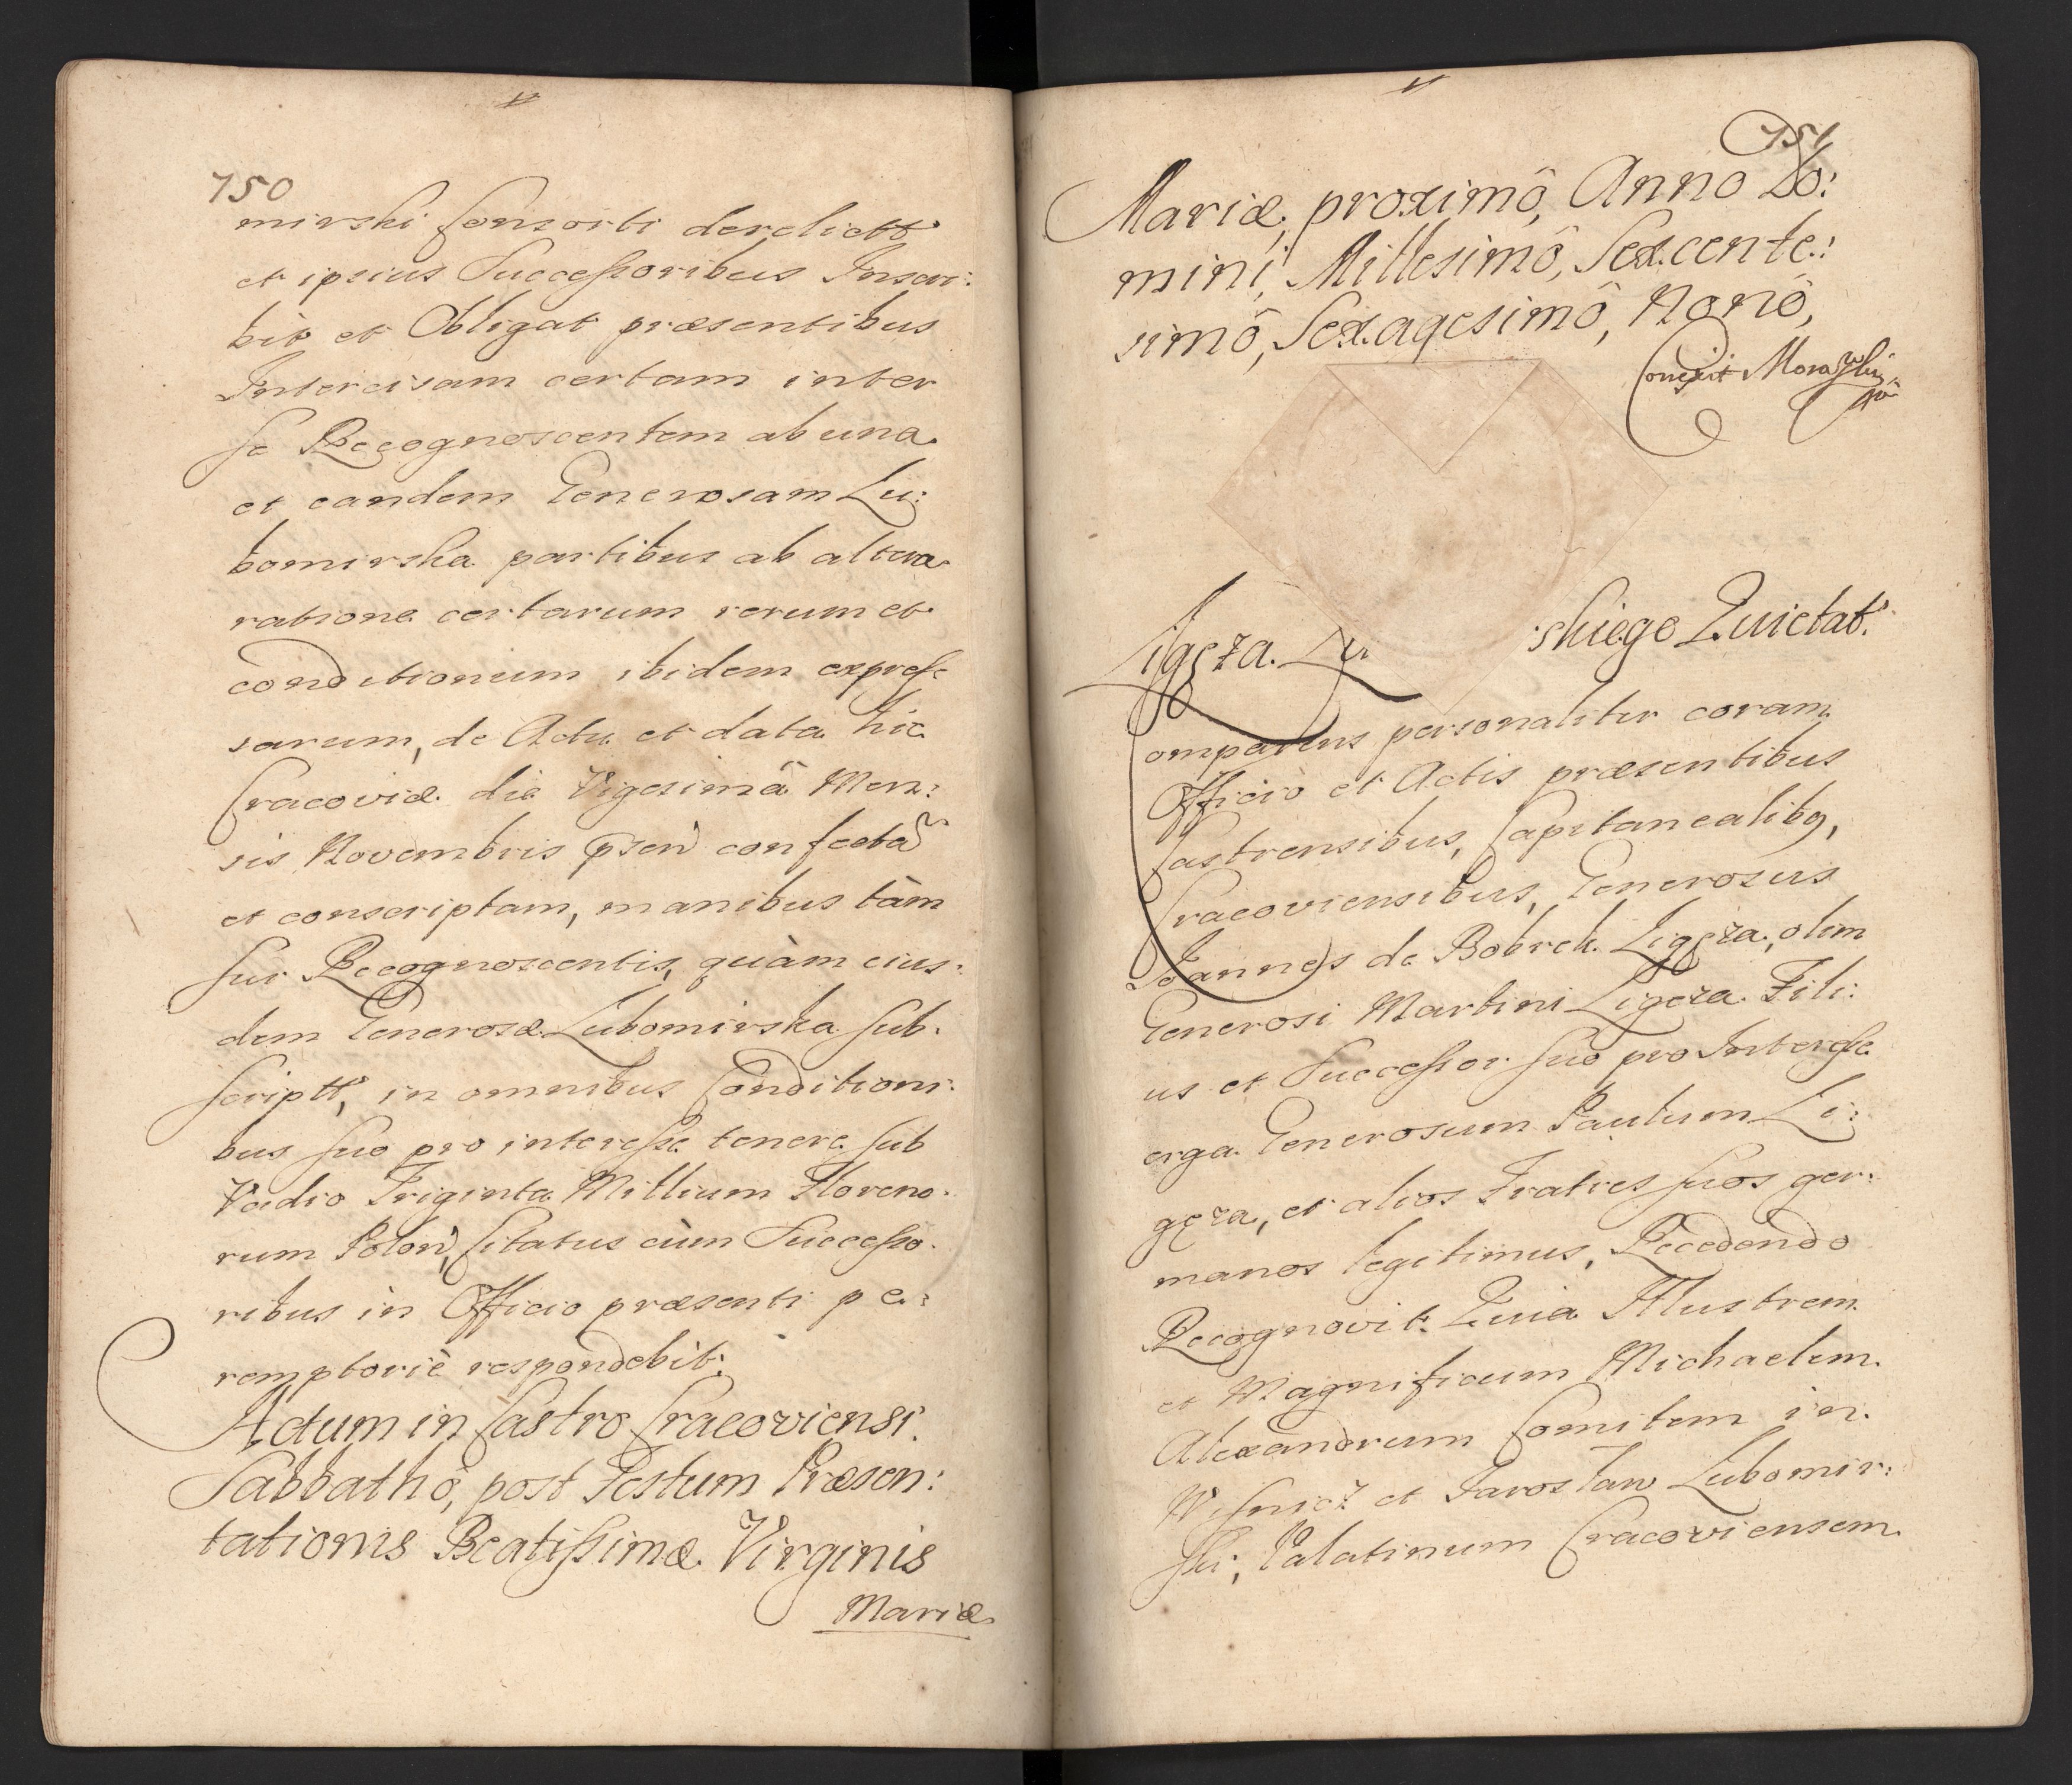 750
mirski Consorti derelictt
et ipsius Successoribus Inscri:
bit et Obligat præsentibus
Intercisam certam inter
se Recognoscentem ab una
et eandem Generosam Lu:
bomirska partibus ab altera
ratione certarum rerum et
conditionum ibidem expres
sarum, de Actu et data hic
Cracoviæ die Vigesimâ Men:
sis Novembris confectã
et conscriptam, manibus tàm
sui Recognoscentis, quàm eius:
dem Generosæ Lubomirska sub:
scriptt, in omnibus Conditioni:
bus suo pro interesse tenere sub
Vadio Triginta Millium Floreno:
rum Polon, Citatus cùm Successo:
ribus in Officio præsenti pe:
remptoriè respondebit.
Actum in Castro Cracoviensi.
Sabbathô, post Festum Præsen:
tationis Beatissimæ Virginis
Mariæ
751
Mariæ, proximô, Anno Do:
mini, Millesimô, Sexcente:
simô, Sexagesimô, Nonô,
Ligęza. Lu skiego Quietat.
Comparens personaliter coram
Officio et Actis præsentibus
Castrensibus, Capitanealibꝰ,
Cracoviensibus, Generosus
Joannes de Bobrek Ligęza, olim
Generosi Martini Ligęza Fili:
us et Successor suo pro Interesse
erga Generosum Paulum Li:
gęza, et alios Fratres suos ger:
manos legitimus, Recedendo
Recognovit. Quia Illustrem
et Magnificum Michaelem
Alexandrum Comitem in
Wisnicz et Jarosław Lubomir:
ski, Palatinum Cracoviensem